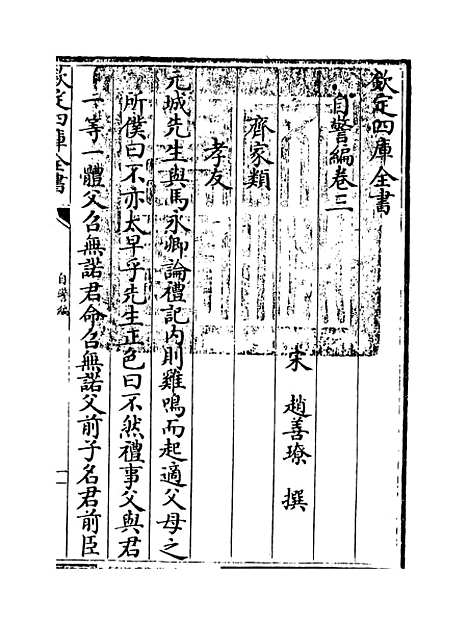 欽定四庫全書
自警編卷三
宋 趙善璙 撰
齊家類
孝友
元城先生與馬永卿論禮記内則雞鳴而起適父母之
所僕曰不亦太早乎先生正色曰不然禮事父與君
一等一體父召無諾君命召無諾父前子名君前臣
欽定四庫全書
自警編
一